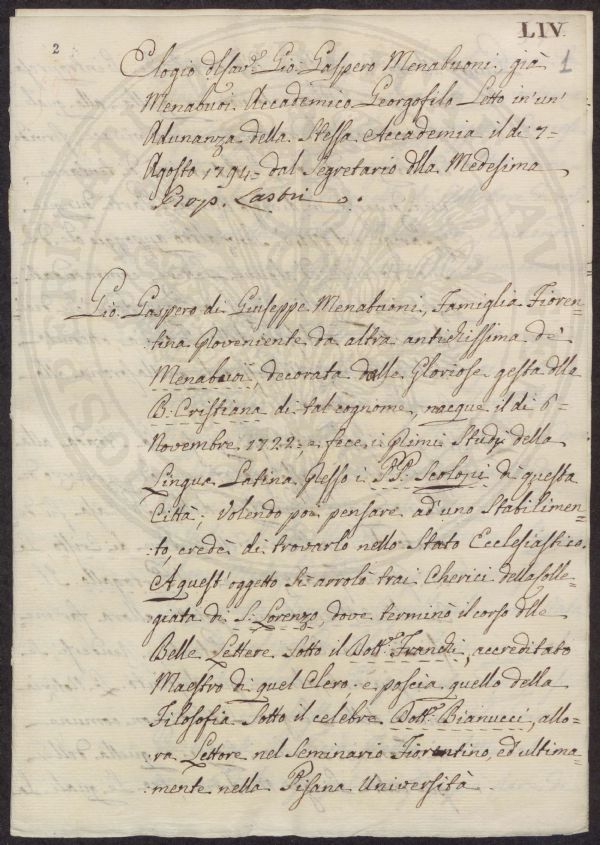 LIV.
2
1
Elogio del Sav.e Gio: Gaspero Menabuoni già
Menabuoi Accademico Georgofilo Letto in un'
Adunanza della Stessa Accademia il di 7=
Agosto 1794= dal Segretario della Medesima
Prop. Lastri.
Gio: Gaspero di Giuseppe Menabuoni, Famiglia Fioren-
tina proveniente da altra antichissima de'
Menabuoi, decorata dalle Gloriose gesta della
B. Cristiana di tal cognome, nacque il di 6=
Novembre 1722=, e fece i primi Studj della
Lingua Latina presso i PP. Scolopi di questa
Città; Volendo poi pensare ad uno Stabilimen-
to, credè di trovarlo nello Stato Ecclesiastico.
A quest'oggetto si arrolò trai Cherici della Colle-
giata di S. Lorenzo, dove terminò il corso delle
Belle Lettere sotto il Dott.e Franchi, accreditato
Maestro di quel Clero, e poscia quello della
Filosofia sotto il celebre Dott.e Bianucci, allo-
ra Lettore nel Seminario Fiorentino, ed ultima-
mente nella Pisana Università.